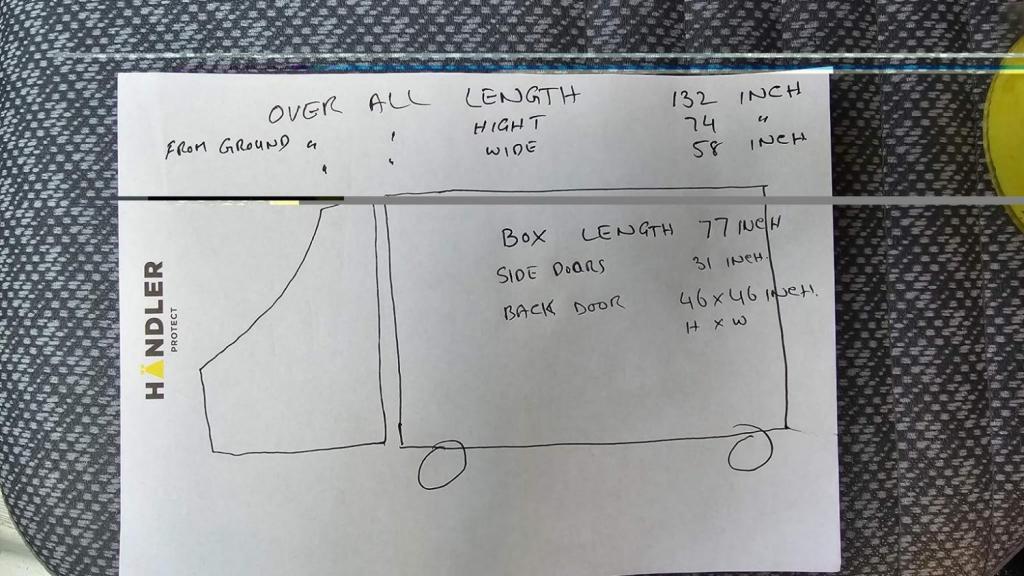 OVER ALL LENGTH 132 INCH
FROM GROUND " ' HIGHT 74 "
' " WIDE 58 INCH
BOX LENGTH 77 INCH
SIDE DOORS 31 INCH.
BACK DOOR 46 x 46 INCH.
H x W
HÄNDLER
PROTECT